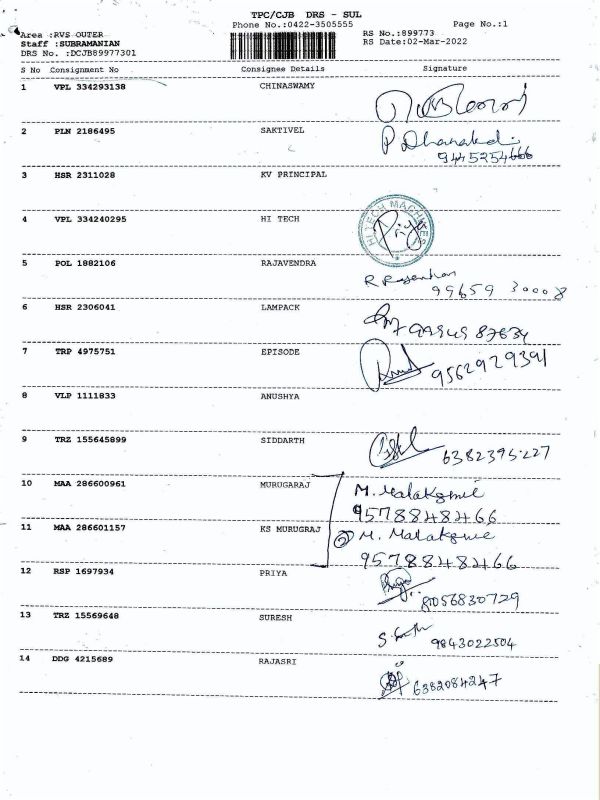 TPC/CJB DRS - SUL
Phone No.:0422-3505555 Page No.:1
Area :RVS OUTER RS No.:899773
Staff :SUBRAMANIAN RS Date:02-Mar-2022
DRS No. :DCJB89977301
S No Consignment No Consignee Details Signature
1 VPL 334293138 CHINASWAMY
2 PLN 2186495 SAKTIVEL P Dhanakodi
9445254666
3 HSR 2311028 KV PRINCIPAL
4 VPL 334240295 HI TECH HI TECH MACHINES Priya
5 POL 1882106 RAJAVENDRA
99659 30008
6 HSR 2306041 LAMPACK
7 TRP 4975751 EPISODE 9562929391
8 VLP 1111833 ANUSHYA
9 TRZ 155645899 SIDDARTH 6382395227
10 MAA 286600961 MURUGARAJ M.
9578848466
11 MAA 286601157 KS MURUGRAJ M.
9578848466
12 RSP 1697934 PRIYA Priya
8056830729
13 TRZ 15569648 SURESH 9843022504
14 DDG 4215689 RAJASRI 6382084247